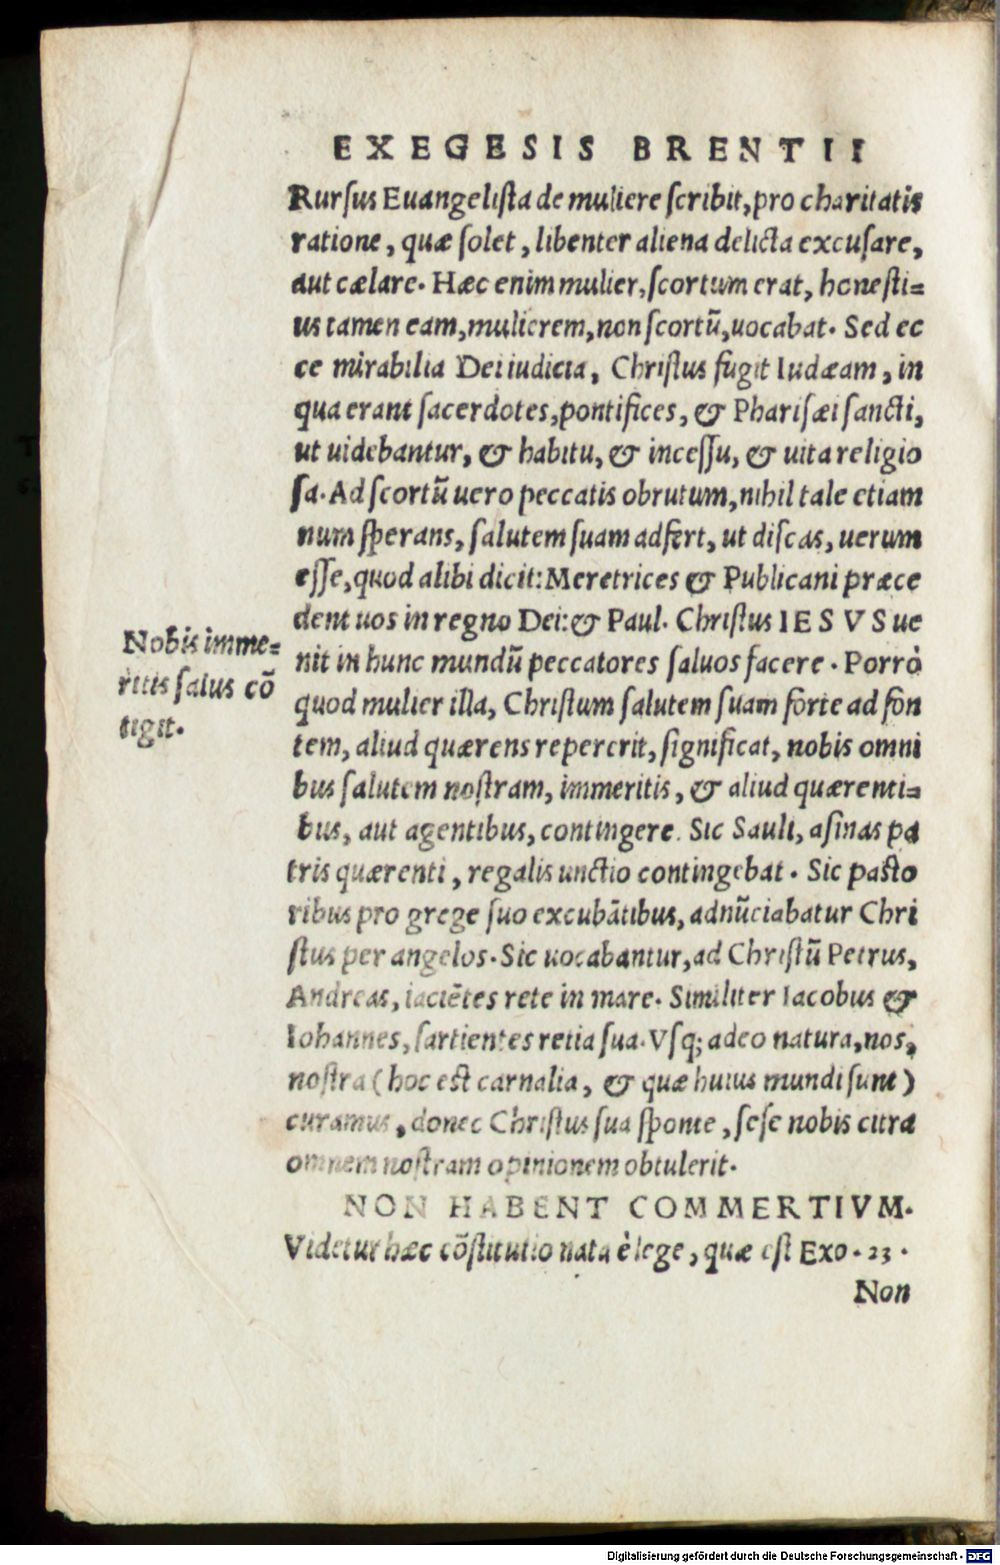 EXEGESIS BRENTII
Rursus Euangelista de muliere scribit, pro charitatis
ratione, quæ solet, libenter aliena delicta excusare,
aut cælare. Hæc enim mulier, scortum erat, honesti=
us tamen eam, mulierem, non scortũ, uocabat. Sed ec
ce mirabilia Dei iudicia, Christus fugit Iudæam, in
qua erant sacerdotes, pontifices, & Pharisæi sancti,
ut uidebantur, & habitu, & incessu, & uita religio
sa. Ad scortũ uero peccatis obrutum, nihil tale etiam
num sperans, salutem suam adfert, ut discas, uerum
esse, quod alibi dicit: Meretrices & Publicani præce
dent uos in regno Dei: & Paul. Christus IESVS ue
nit in hunc mundũ peccatores saluos facere. Porrò
quod mulier illa, Christum salutem suam forte ad fon
tem, aliud quærens repererit, significat, nobis omni
bus salutem nostram, immeritis, & aliud quærenti=
bus, aut agentibus, contingere. Sic Sauli, asinas pa
tris quærenti, regalis unctio contingebat. Sic pasto
ribus pro grege suo excubãtibus, adnũciabatur Chri
stus per angelos. Sic uocabantur, ad Christũ Petrus,
Andreas, iaciẽtes rete in mare. Similiter Iacobus &
Iohannes, sartientes retia sua. Vsq; adeo natura, nos,
nostra (hoc est carnalia, & quæ huius mundi sunt)
curamus, donec Christus sua sponte, sese nobis citra
omnem nostram opinionem obtulerit.
NON HABENT COMMERTIVM.
Videtur hæc cõstitutio nata è lege, quæ est Exo. 23.
Non
Nobis imme=
ritis salus cõ
tigit.
Digitalisierung gefördert durch die Deutsche Forschungsgemeinschaft - DFG